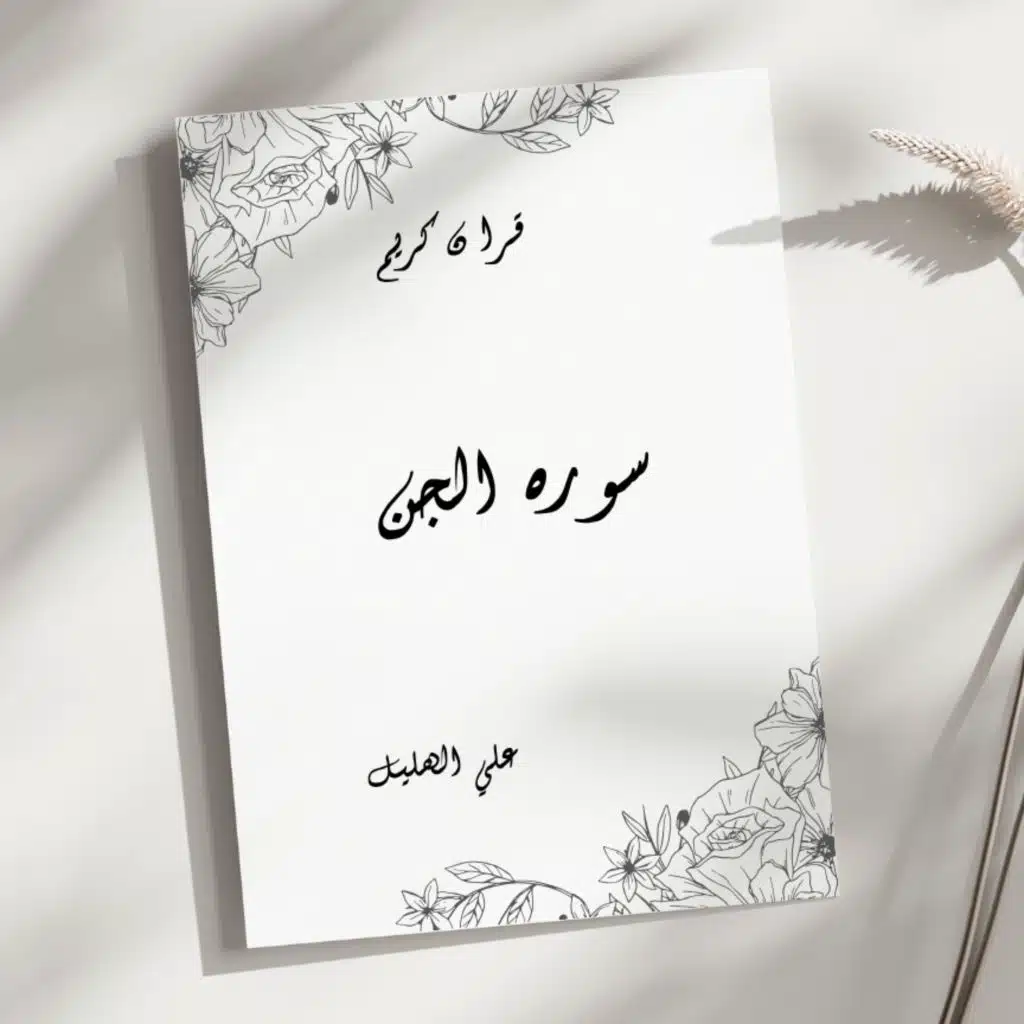 قران كريم
سوره الجن
علي الهليل